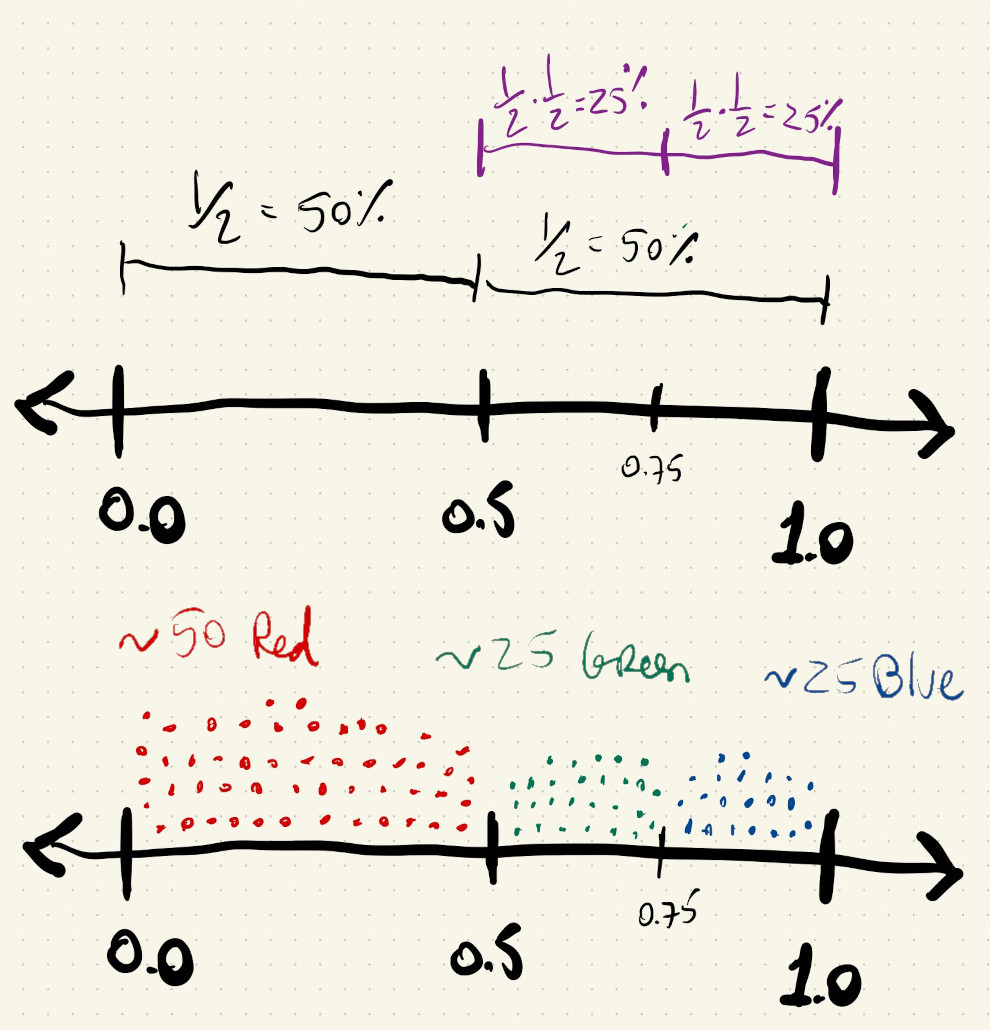 1/2 · 1/2 = 25% 1/2 · 1/2 = 25%
1/2 = 50%
1/2 = 50%
0.75
0.0 0.5 1.0
~50 Red
~25 Green
~25 Blue
0.75
0.0 0.5 1.0